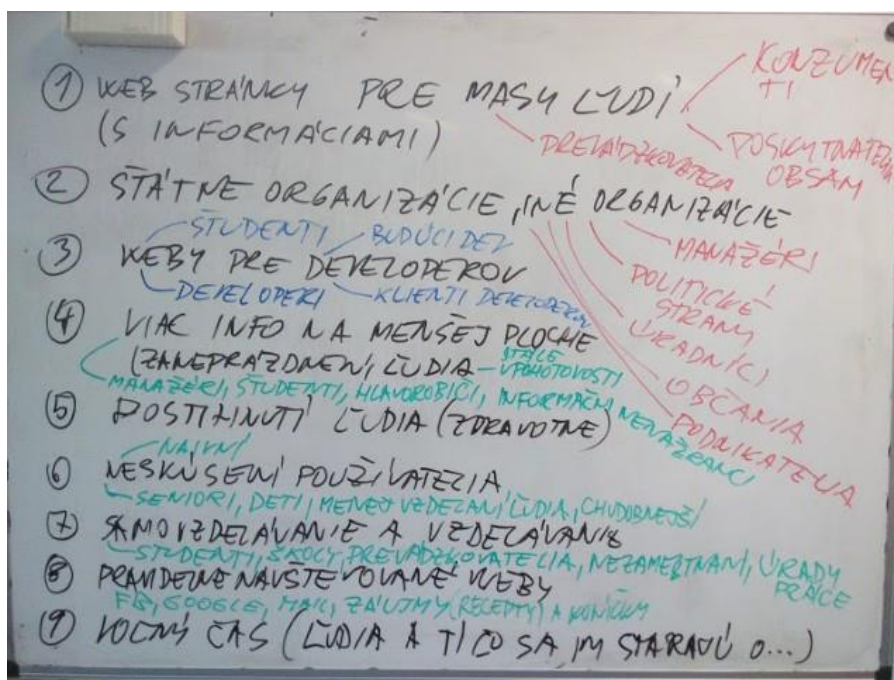 ① WEB STRÁNKY PRE MASY ĽUDÍ
(S INFORMÁCIAMI)
KONZUMENTI
PREVÁDZKOVATELIA
POSKYTOVATELIA OBSAHU
② ŠTÁTNE ORGANIZÁCIE, INÉ ORGANIZÁCIE
MANAŽÉRI
POLITICKÉ STRANY
ÚRADNÍCI
OBČANIA
PODNIKATELIA
ŠTUDENTI BUDÚCI DEV
③ WEBY PRE DEVELOPEROV
DEVELOPERI KLIENTI DEVELOPEROV
④ VIAC INFO NA MENŠEJ PLOCHE
(ZANEPRÁZDNENÍ ĽUDIA STÁLE V POHOTOVOSTI
MANAŽÉRI, ŠTUDENTI, HLAVOROBIČI, INFORMAČNÍ NENAŽRANCI
⑤ POSTIHNUTÍ ĽUDIA (ZDRAVOTNE)
NAIVNÍ
⑥ NESKÚSENÍ POUŽÍVATELIA
SENIORI, DETI, MENEJ VZDELANÍ ĽUDIA, CHUDOBNEJŠÍ
⑦ SAMOVZDELÁVANIE A VZDELÁVANIE
ŠTUDENTI, ŠKOLY, PREVÁDZKOVATELIA, NEZAMESTNANÍ, ÚRADY PRÁCE
⑧ PRAVIDELNE NAVŠTEVOVANÉ WEBY
FB, GOOGLE, MAIL, ZÁUJMY (RECEPTY) A KONÍČKY
⑨ VOĽNÝ ČAS (ĽUDIA A TÍ ČO SA IM STARAJÚ O...)